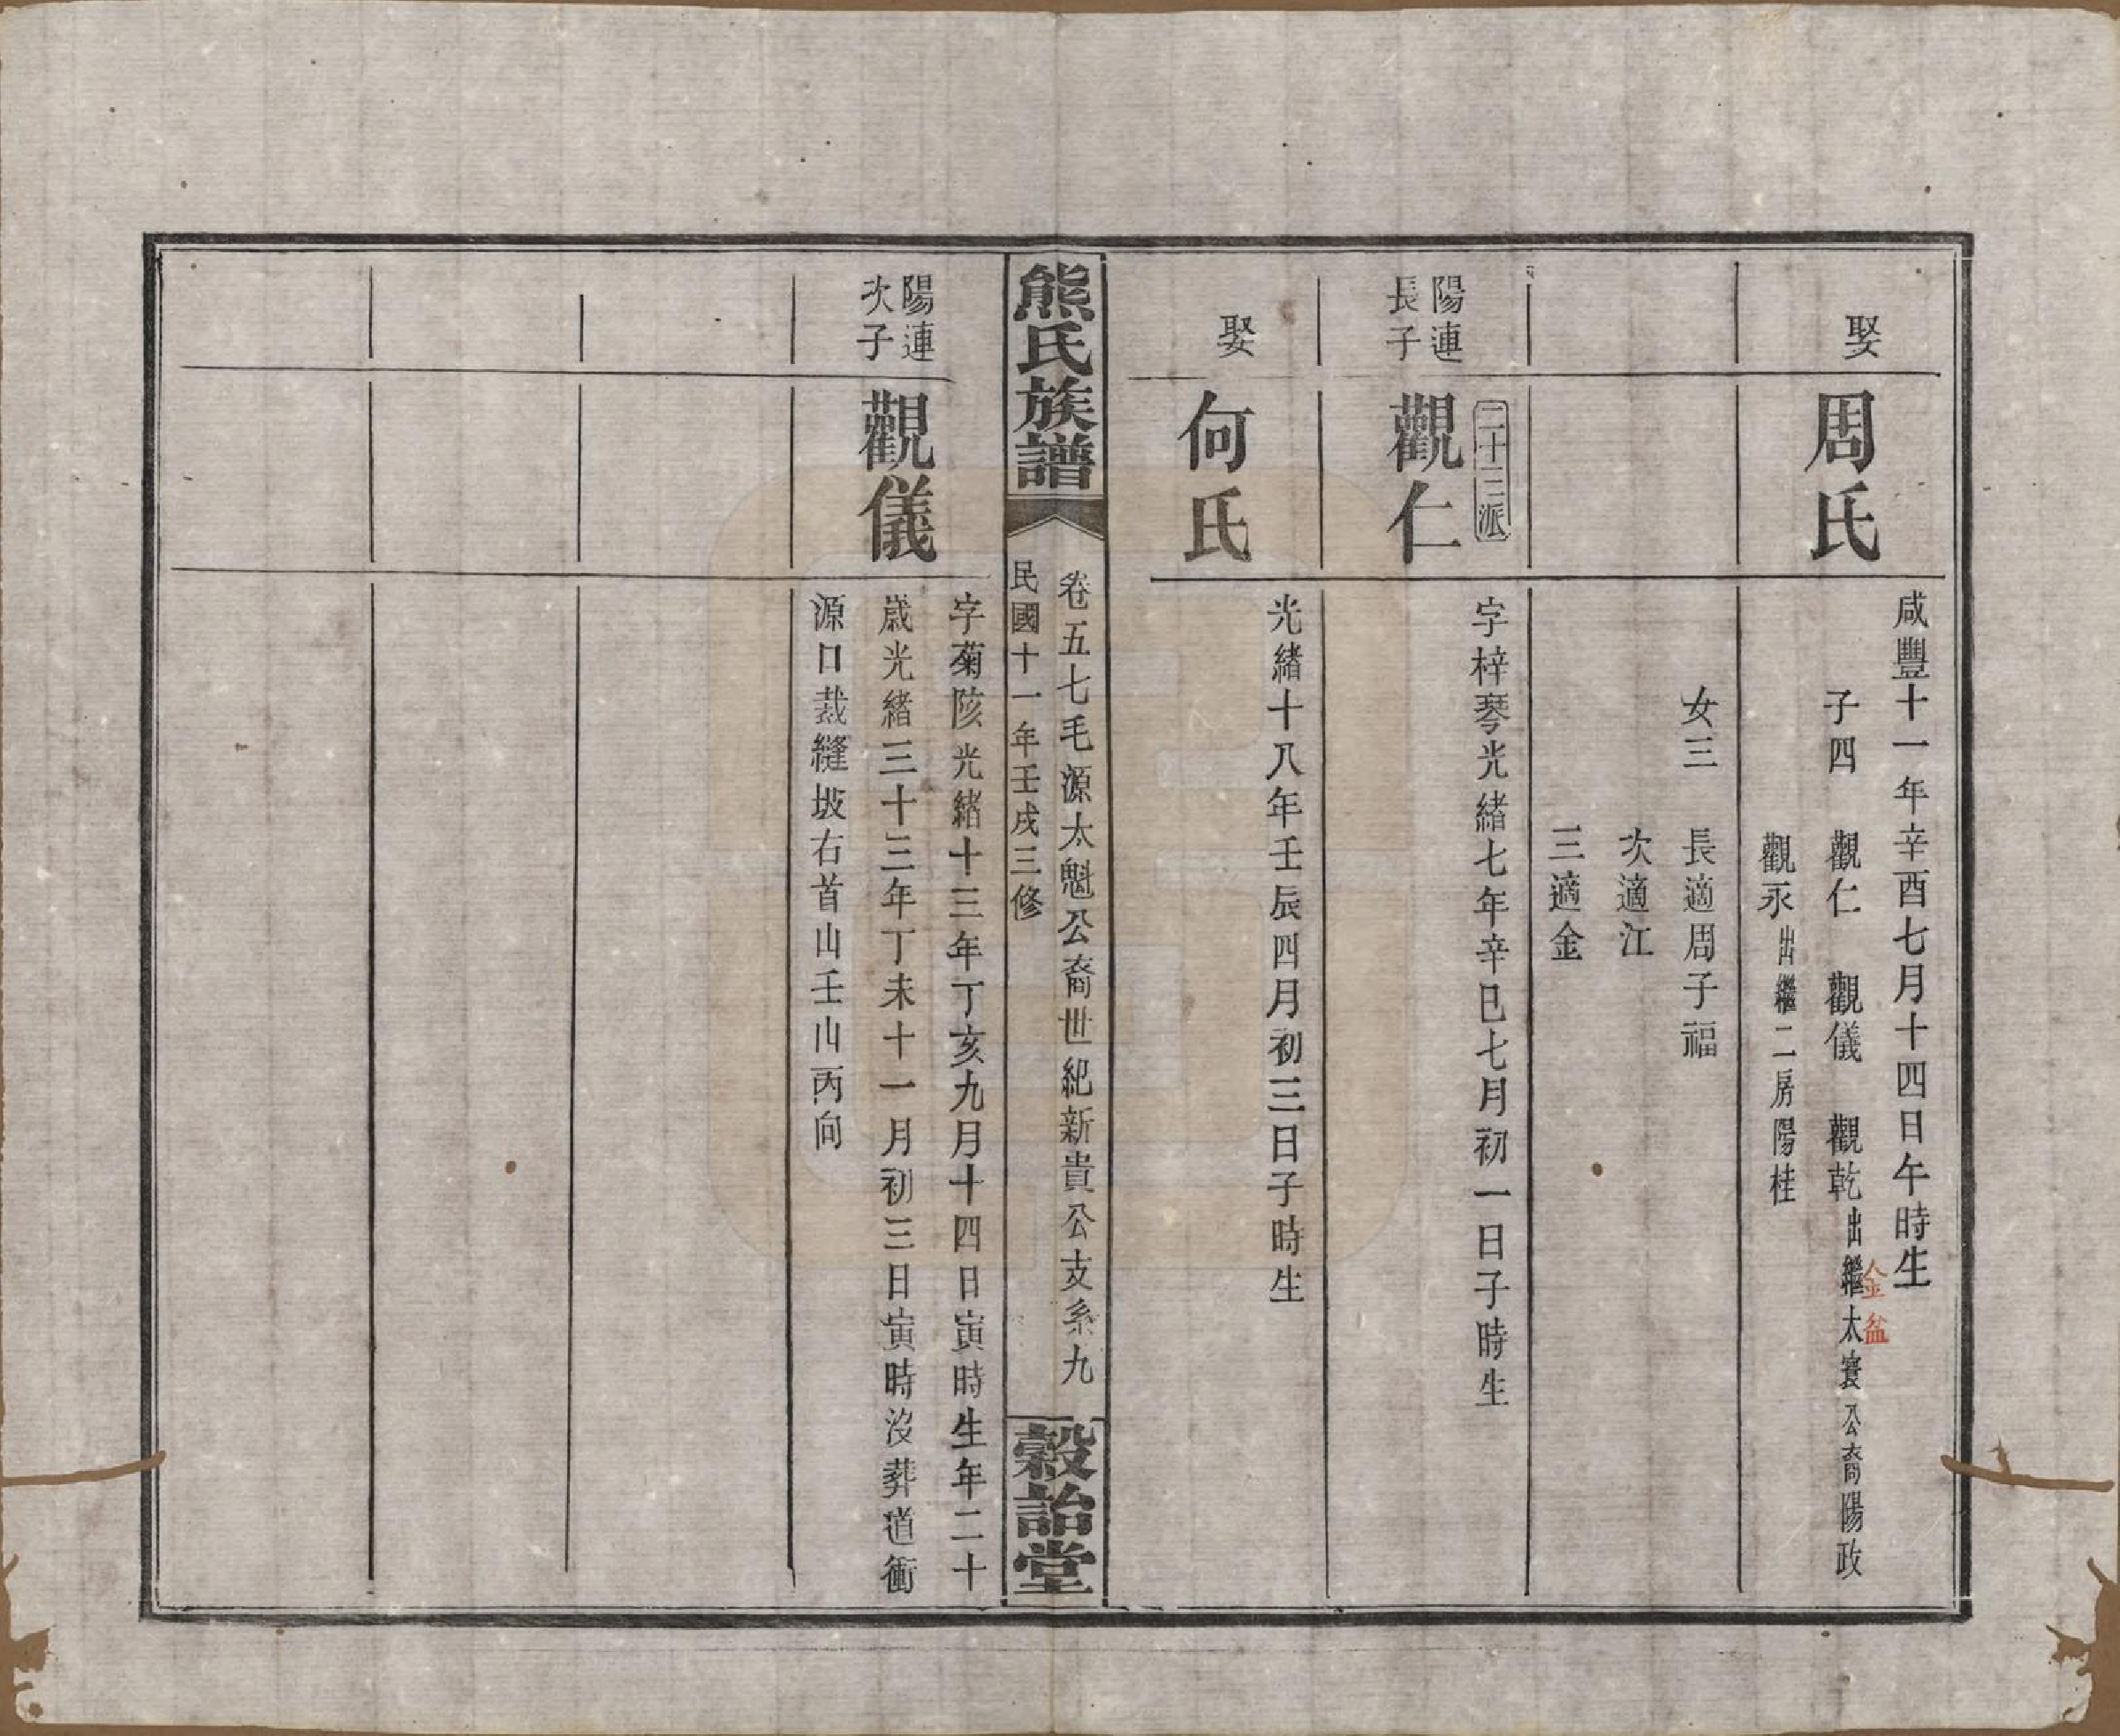 娶
周氏
咸豐十一年辛酉七月十四日午時生
子四　觀仁　觀儀　觀乾出繼太寰公裔陽政
金盆
觀永出繼二房陽桂
女三　長適周子福
次適江
三適金
陽連
長子
二十三派
觀仁
字梓琴光緒七年辛巳七月初一日子時生
娶
何氏
光緒十八年壬辰四月初三日子時生
熊氏族譜
卷五七毛源太魁公裔世紀新貴公支系九
民國十一年壬戌三修
穀詒堂
陽連
次子
觀儀
字菊陔光緒十三年丁亥九月十四日寅時生年二十
歲光緒三十三年丁未十一月初三日寅時沒葬道衝
源口裁縫坡右首山壬山丙向